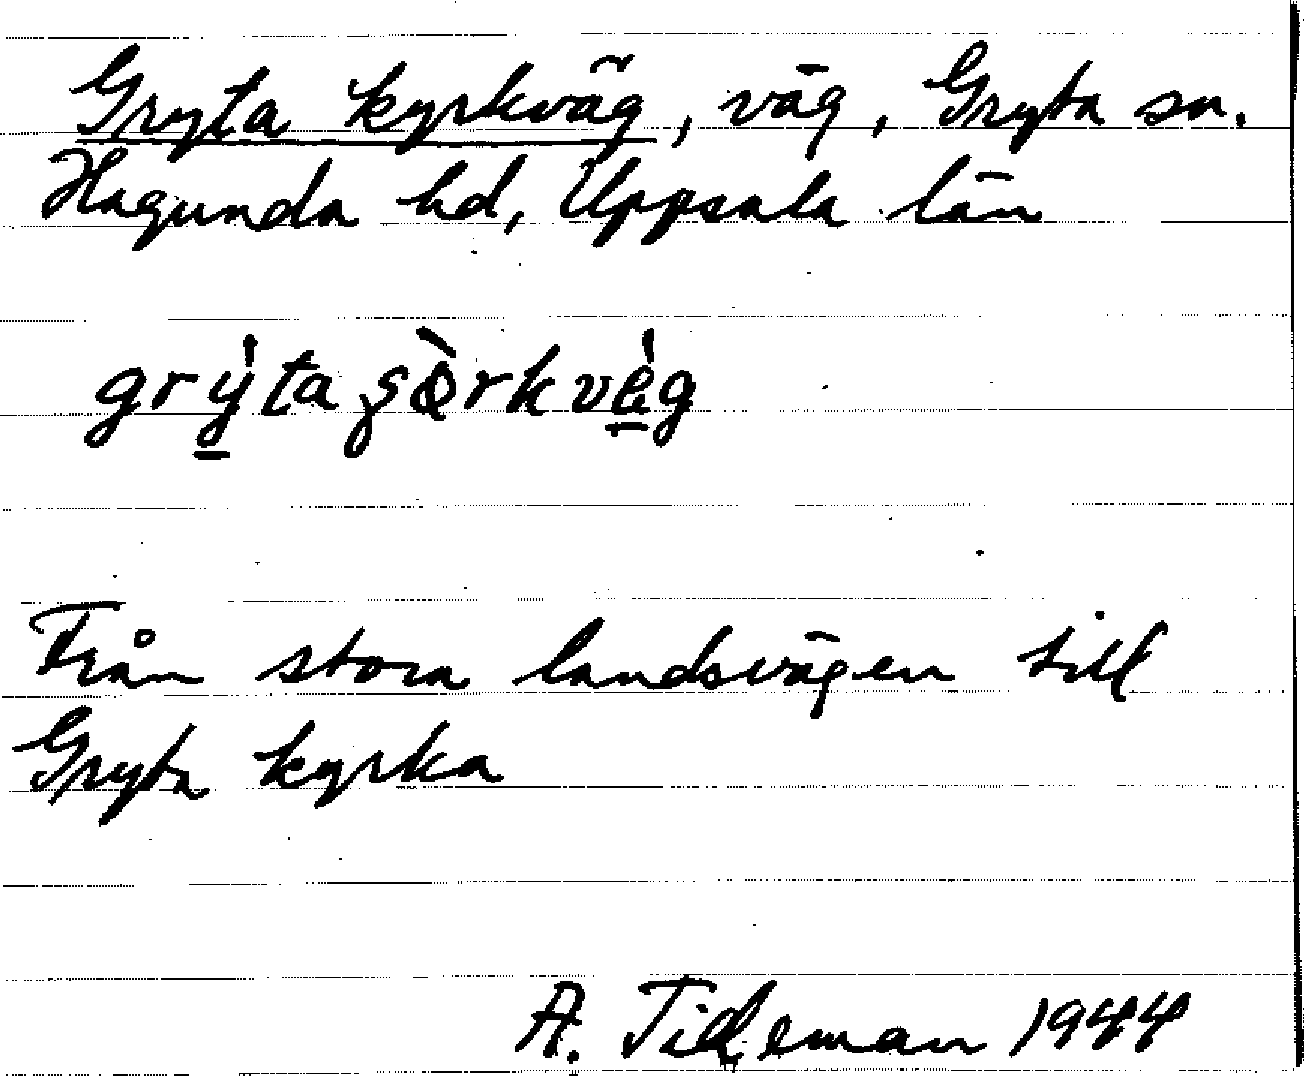 Gryta kyrkväg, väg, Gryta sn.
Hagunda hd, Uppsala län
Från stora landsvägen till
Gryta kyrka
A. Tideman 1944